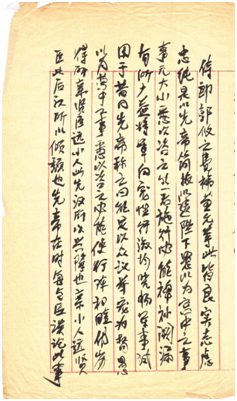 侍郎郭攸之费祎董允等此皆良实志虑
忠纯是以先帝简拔以遗陛下愚以为宫中之事
事无大小悉以咨之然后施行必能裨补阙漏
有所广益将军向宠性行淑均晓畅军事试
用于昔日先帝称之曰能是以众议举宠为督愚
以为营中之事悉以咨之必能使行阵和睦优劣
得所亲贤臣远小人此先汉所以兴隆也亲小人远贤
臣此后汉所以倾颓也先帝在时每与臣谈论此事